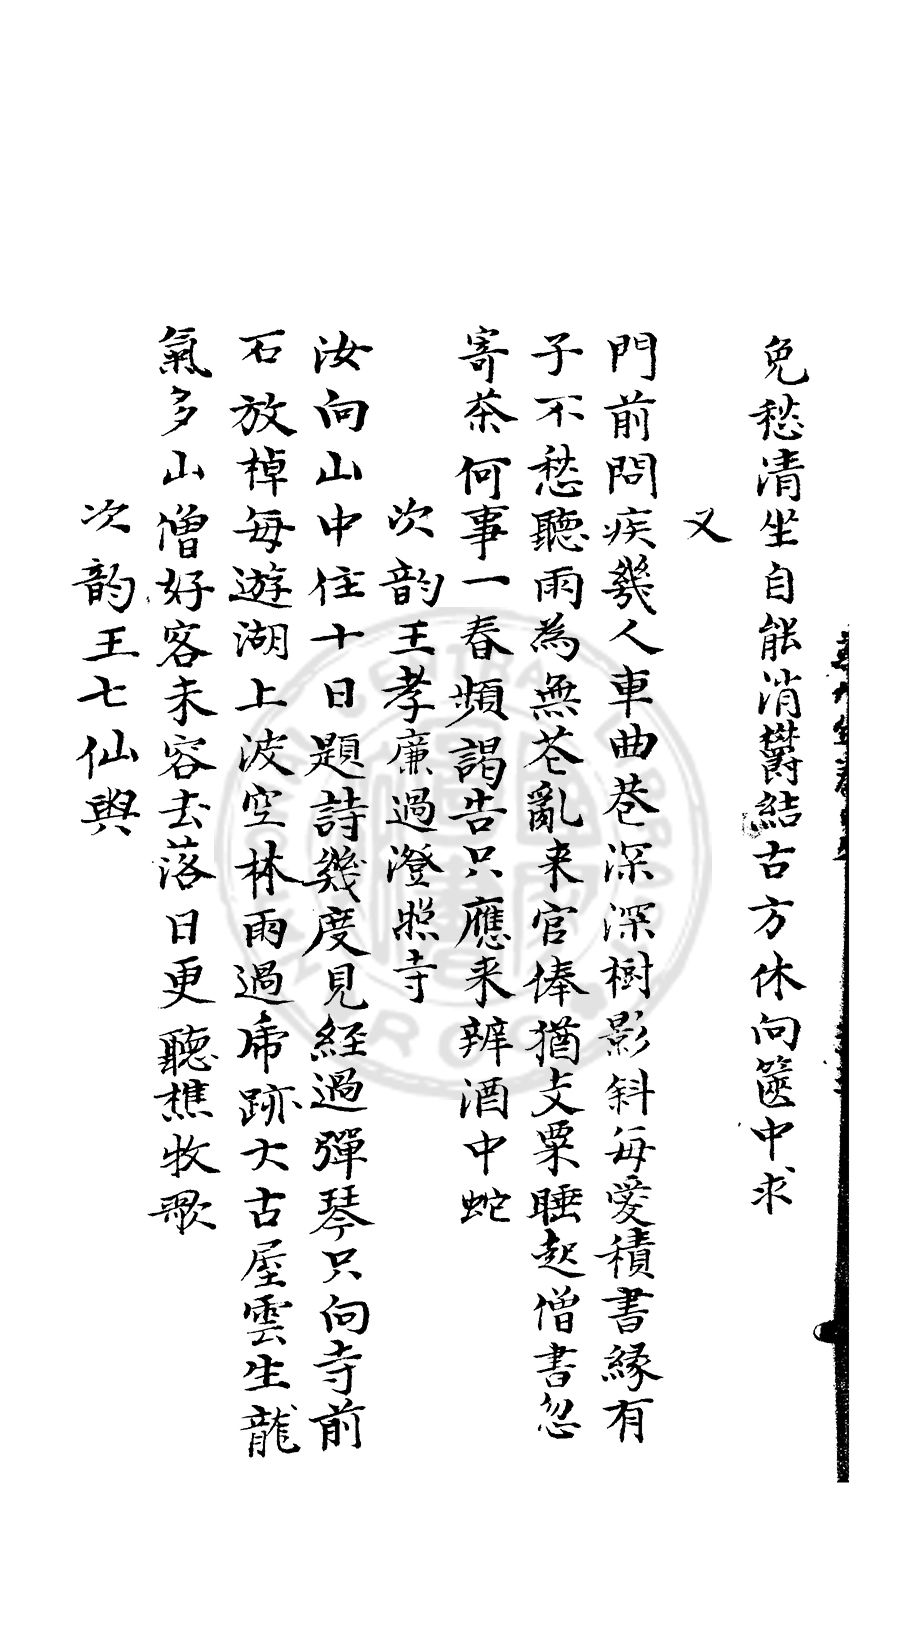 免愁清坐自能消鬱結古方休向篋中求
又
門前問疾幾人車曲巷深深樹影斜每愛積書緣有
子不愁聽雨為無花亂来官俸猶支粟睡起僧書忽
寄茶何事一春頻謁告只應来辨酒中蛇
次韵王孝廉過澄照寺
汝向山中住十日題詩幾度見經過彈琴只向寺前
石放棹每遊湖上波空林雨過虎跡大古屋雲生龍
氣多山僧好客未容去落日更聽樵牧歌
次韵王七仙與